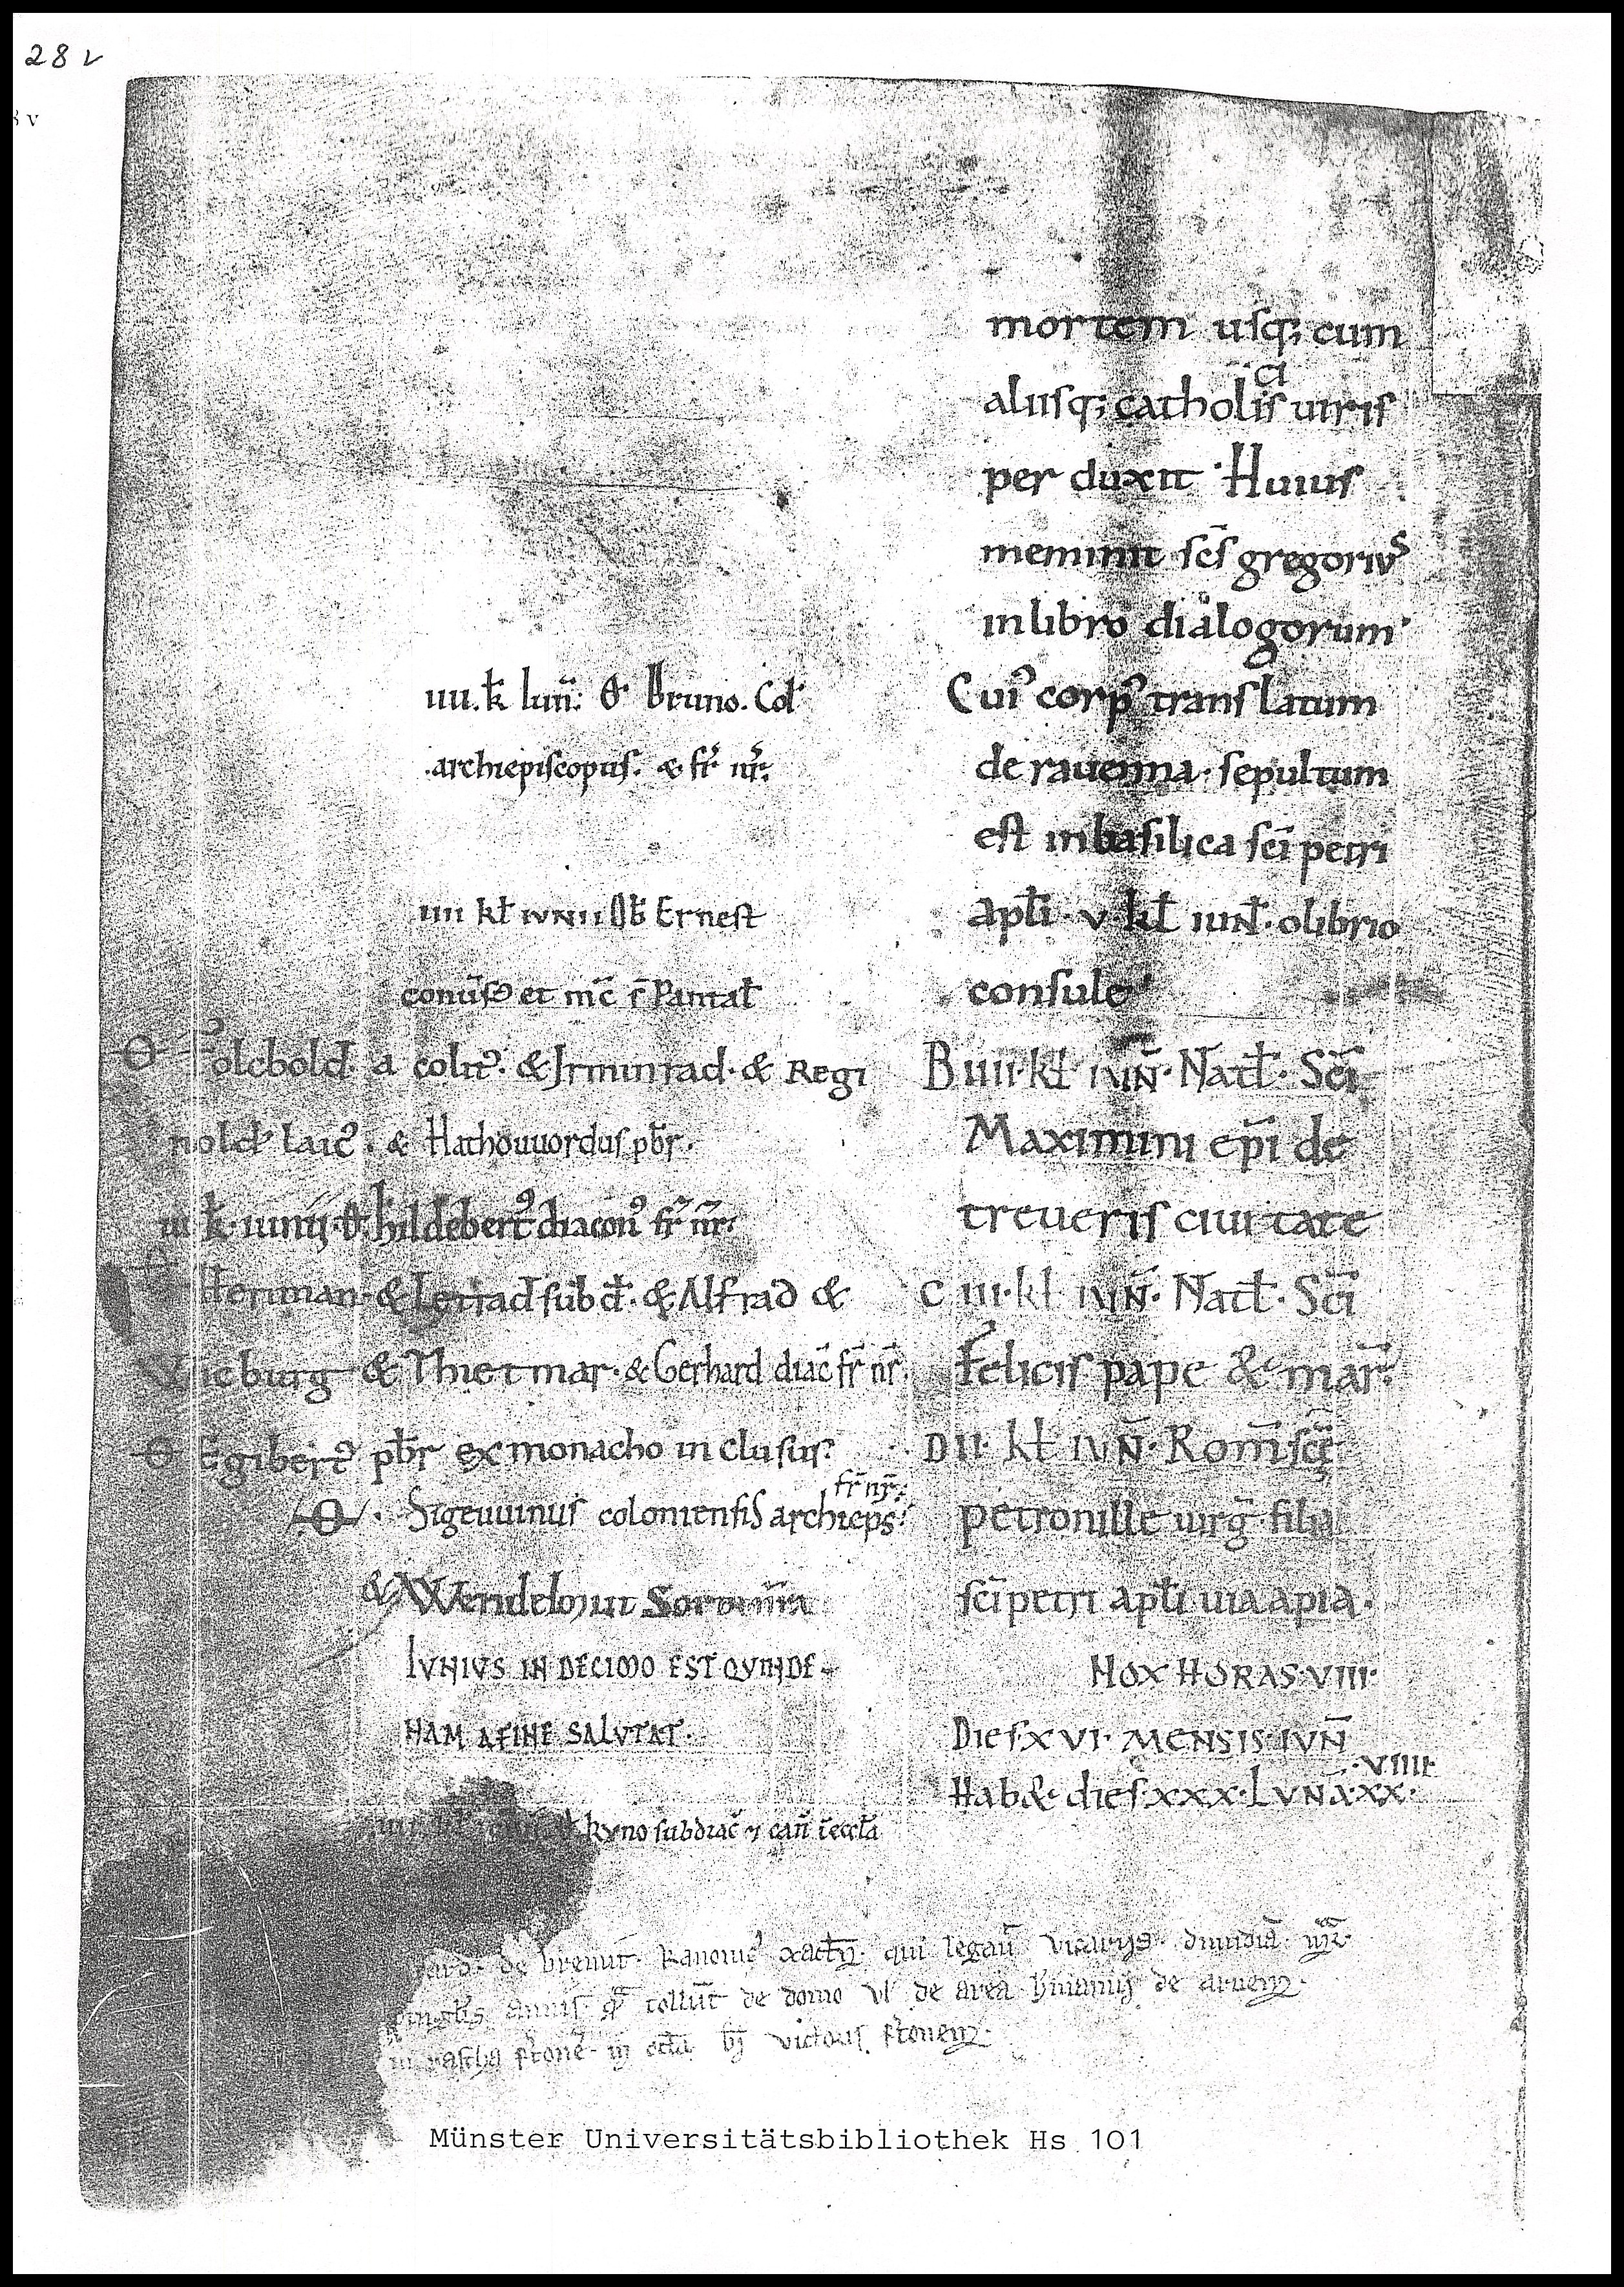 28 v
mortem usq; cum
aliisq; catholicis uiris
per duxit· Huius
meminit scs̄ gregorius
in libro dialogorum·
Cui' corp' translatum
de rauenna· sepultum
est in basilica sc̄i petri
apl̄i· v· kł iun̄· olibrio
consule·
B iiii· kł iun̄· Natł· Sc̄i
Maximini ep̄i de
treueris ciuitate
C iii· kł iun̄· Natł· Sc̄i
Felicis pape & mar̄·
D ii· kł iun̄· Rom̄ sc̄ę
petronille uirḡ· filia
sc̄i petri apl̄i uia apia·
NOX HORAS· VIII·
Dies· XVI· MENSIS· IVN̄
Hab&· dies· xxx· LVNA· XX· VIIII·
iiii. k̄ iun̄: O· Bruno. Col'
archiepiscopus. & fr̄ nr̄:
iiii kł IVNII Ob̄ Ernest
et m̄c r̄ Pantał
O Folcbold· a colit'· & Irminrad· & Regi
nold' laic'· & Hathouuordus pb̄r·
iii k̄· iunii· O· hildebert' diacon' fr̄ nr̄·
Heriman· & Leriad subd̄· & Alfrad &
Wicburg & Thietmar· & Gerhard diac̄ fr̄ nr̄·
O Egibert' pb̄r ex monacho inclusus·
O· Sigeuuinus coloniensis archiep̄s· fr̄ nr̄:
& Wendelmut Soror nr̄a
IVNIVS IN DECIMO EST QVINDE-
NAM A FINE SALVTAT·
kyno subdiac̄ can̄
de brenut· kanonic' xact̄· qui legau̅ vicariis dimidia̅ mr̄·
annis tollu̅t de domo ul' de area de
victoris
Münster Universitätsbibliothek Hs 101